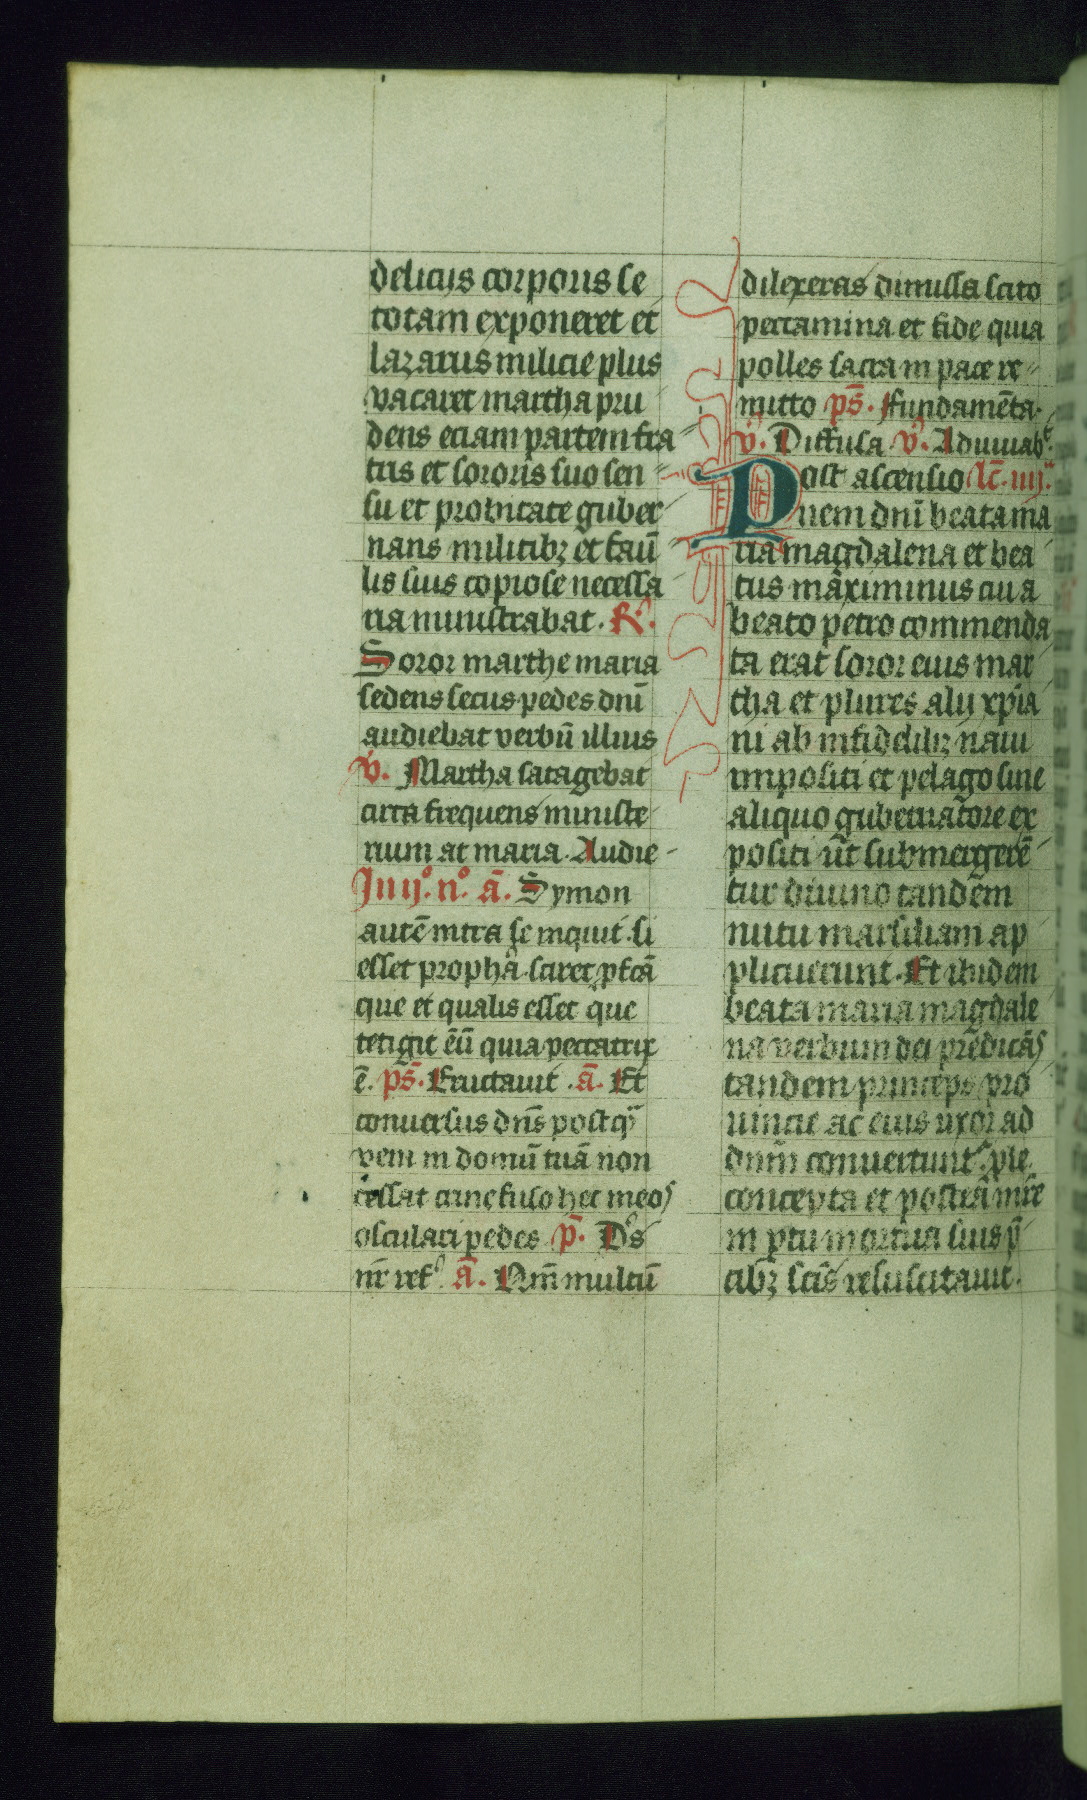 delicijs corporis se
totam exponeret et
lazarus milicie plus
vacaret martha pru
dens eciam partem fra
tris et sororis suo sen
su et probitate guber
nans militibꝫ et famū
lis suis copiose necessa
ria ministrabat. R̸.
Soror marthe maria
sedens secus pedes dnī
audiebat verbū illius
v̓. Martha satagebat
circa frequens ministe
rium at maria. Audie
In ijº. nº. ā. Symon
autē intra se inquit. si
esset propha. sciret pctā
que et qualis esset que
tetigit eū quia peccatrix
ē. ps̄. Eructauit. ā. Et
conuersus dn̄s postq̄
veni in domū tuā non
cessat cum effuso hec meos
osculari pedes p̄. Ds
nr̄ ref. ā. Nam̄ multū
dilexeras dimissa scito
peccamina et fide quia
polles sacra in pace re
mitto ps̄. Fundamēta.
v̓. Diffusa v̓. Adiuuabᵗ.
Post ascensio lc̄. iiij.
nem dnī beata ma
ria magdalena et bea
tus maximinus cui a
beato petro commenda
ta erat soror eius mar
tha et plures alij xp̄ia
ni ab infidelibꝫ naui
impositi et pelago sine
aliquo gubernatore ex
positi ut submergerē
tur diuino tandem
nutu marsiliam ap
plicuerunt. Et ibidem
beata maria magdale
na verbum dei predicās
tandem princeps pro
uincie ac eius uxor ad
dnm̄ conuertunt᷑. ple
concepta et postea mr̄e
in ptu mortua suis p̄
cibꝫ scīs resuscitauit.